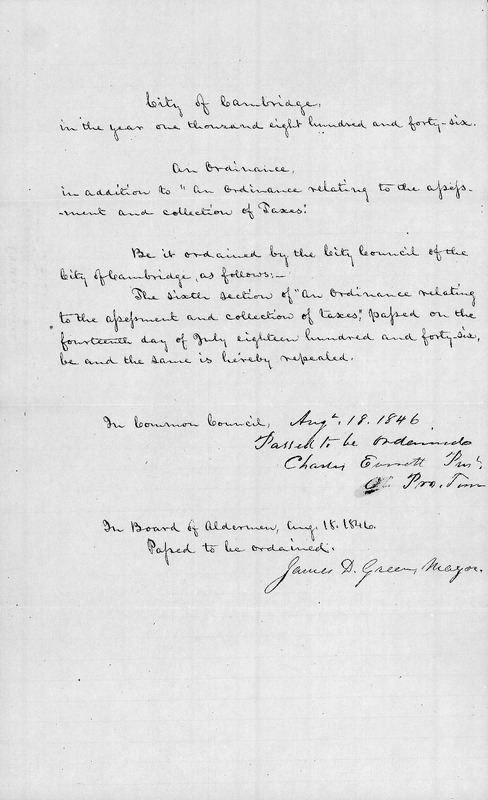 City of Cambridge,
in the year one thousand eight hundred and forty-six.
An Ordinance,
in addition to "An Ordinance relating to the assess-
-ment and collection of Taxes."
Be it ordained by the City Council of the
City of Cambridge, as follows:—
The sixth section of "An Ordinance relating
to the assessment and collection of taxes," passed on the
fourteenth day of July eighteen hundred and forty-six,
be and the same is hereby repealed.
In Common Council, Augt. 18. 1846
Passed to be ordained
Charles Everett Prest.
Pro. Tem
In Board of Aldermen, Aug. 18. 1846.
Passed to be ordained.
James D. Green, Mayor.